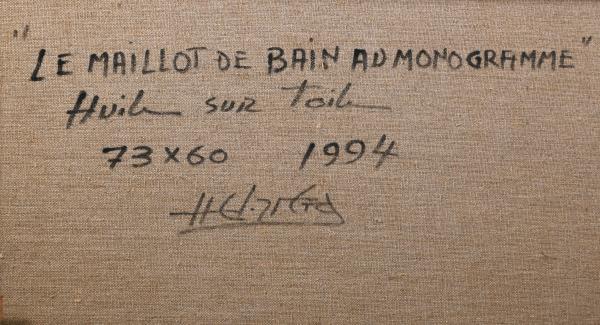 "LE MAILLOT DE BAIN AU MONOGRAMME"
Huile sur Toile
73x60 1994